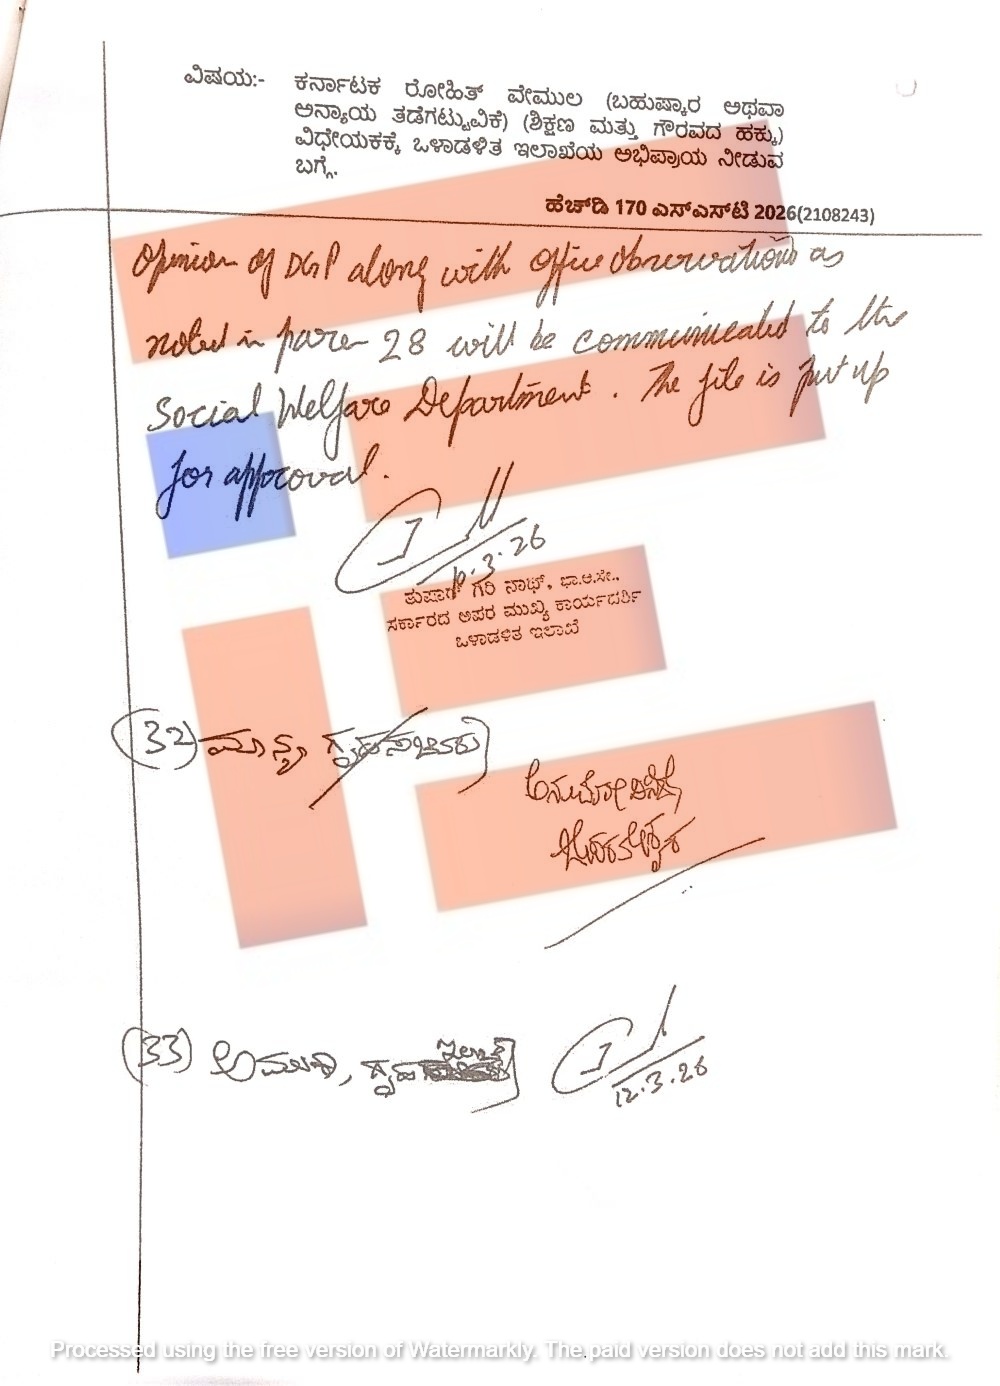 ವಿಷಯ:- ಕರ್ನಾಟಕ ರೋಹಿತ್ ವೇಮುಲ (ಬಹುಷ್ಕಾರ ಅಥವಾ
ಅನ್ಯಾಯ ತಡೆಗಟ್ಟುವಿಕೆ) (ಶಿಕ್ಷಣ ಮತ್ತು ಗೌರವದ ಹಕ್ಕು)
ವಿಧೇಯಕಕ್ಕೆ ಒಳಾಡಳಿತ ಇಲಾಖೆಯ ಅಭಿಪ್ರಾಯ ನೀಡುವ
ಬಗ್ಗೆ.
ಹೆಚ್‌ಡಿ 170 ಎಸ್‌ಎಸ್‌ಟಿ 2026(2108243)
Opinion of DGP along with office observations as
noted in para 28 will be communicated to the
Social Welfare Department. The file is put up
for approval.
10.3.26
ತುಷಾರ್ ಗಿರಿ ನಾಥ್, ಭಾ.ಆ.ಸೇ.,
ಸರ್ಕಾರದ ಅಪರ ಮುಖ್ಯ ಕಾರ್ಯದರ್ಶಿ
ಒಳಾಡಳಿತ ಇಲಾಖೆ
(32) ಮಾನ್ಯ ಗೃಹಸಚಿವರು
(33) ಅಮುಕಾ, ಗೃಹ
12.3.26
Processed using the free version of Watermarkly. The paid version does not add this mark.